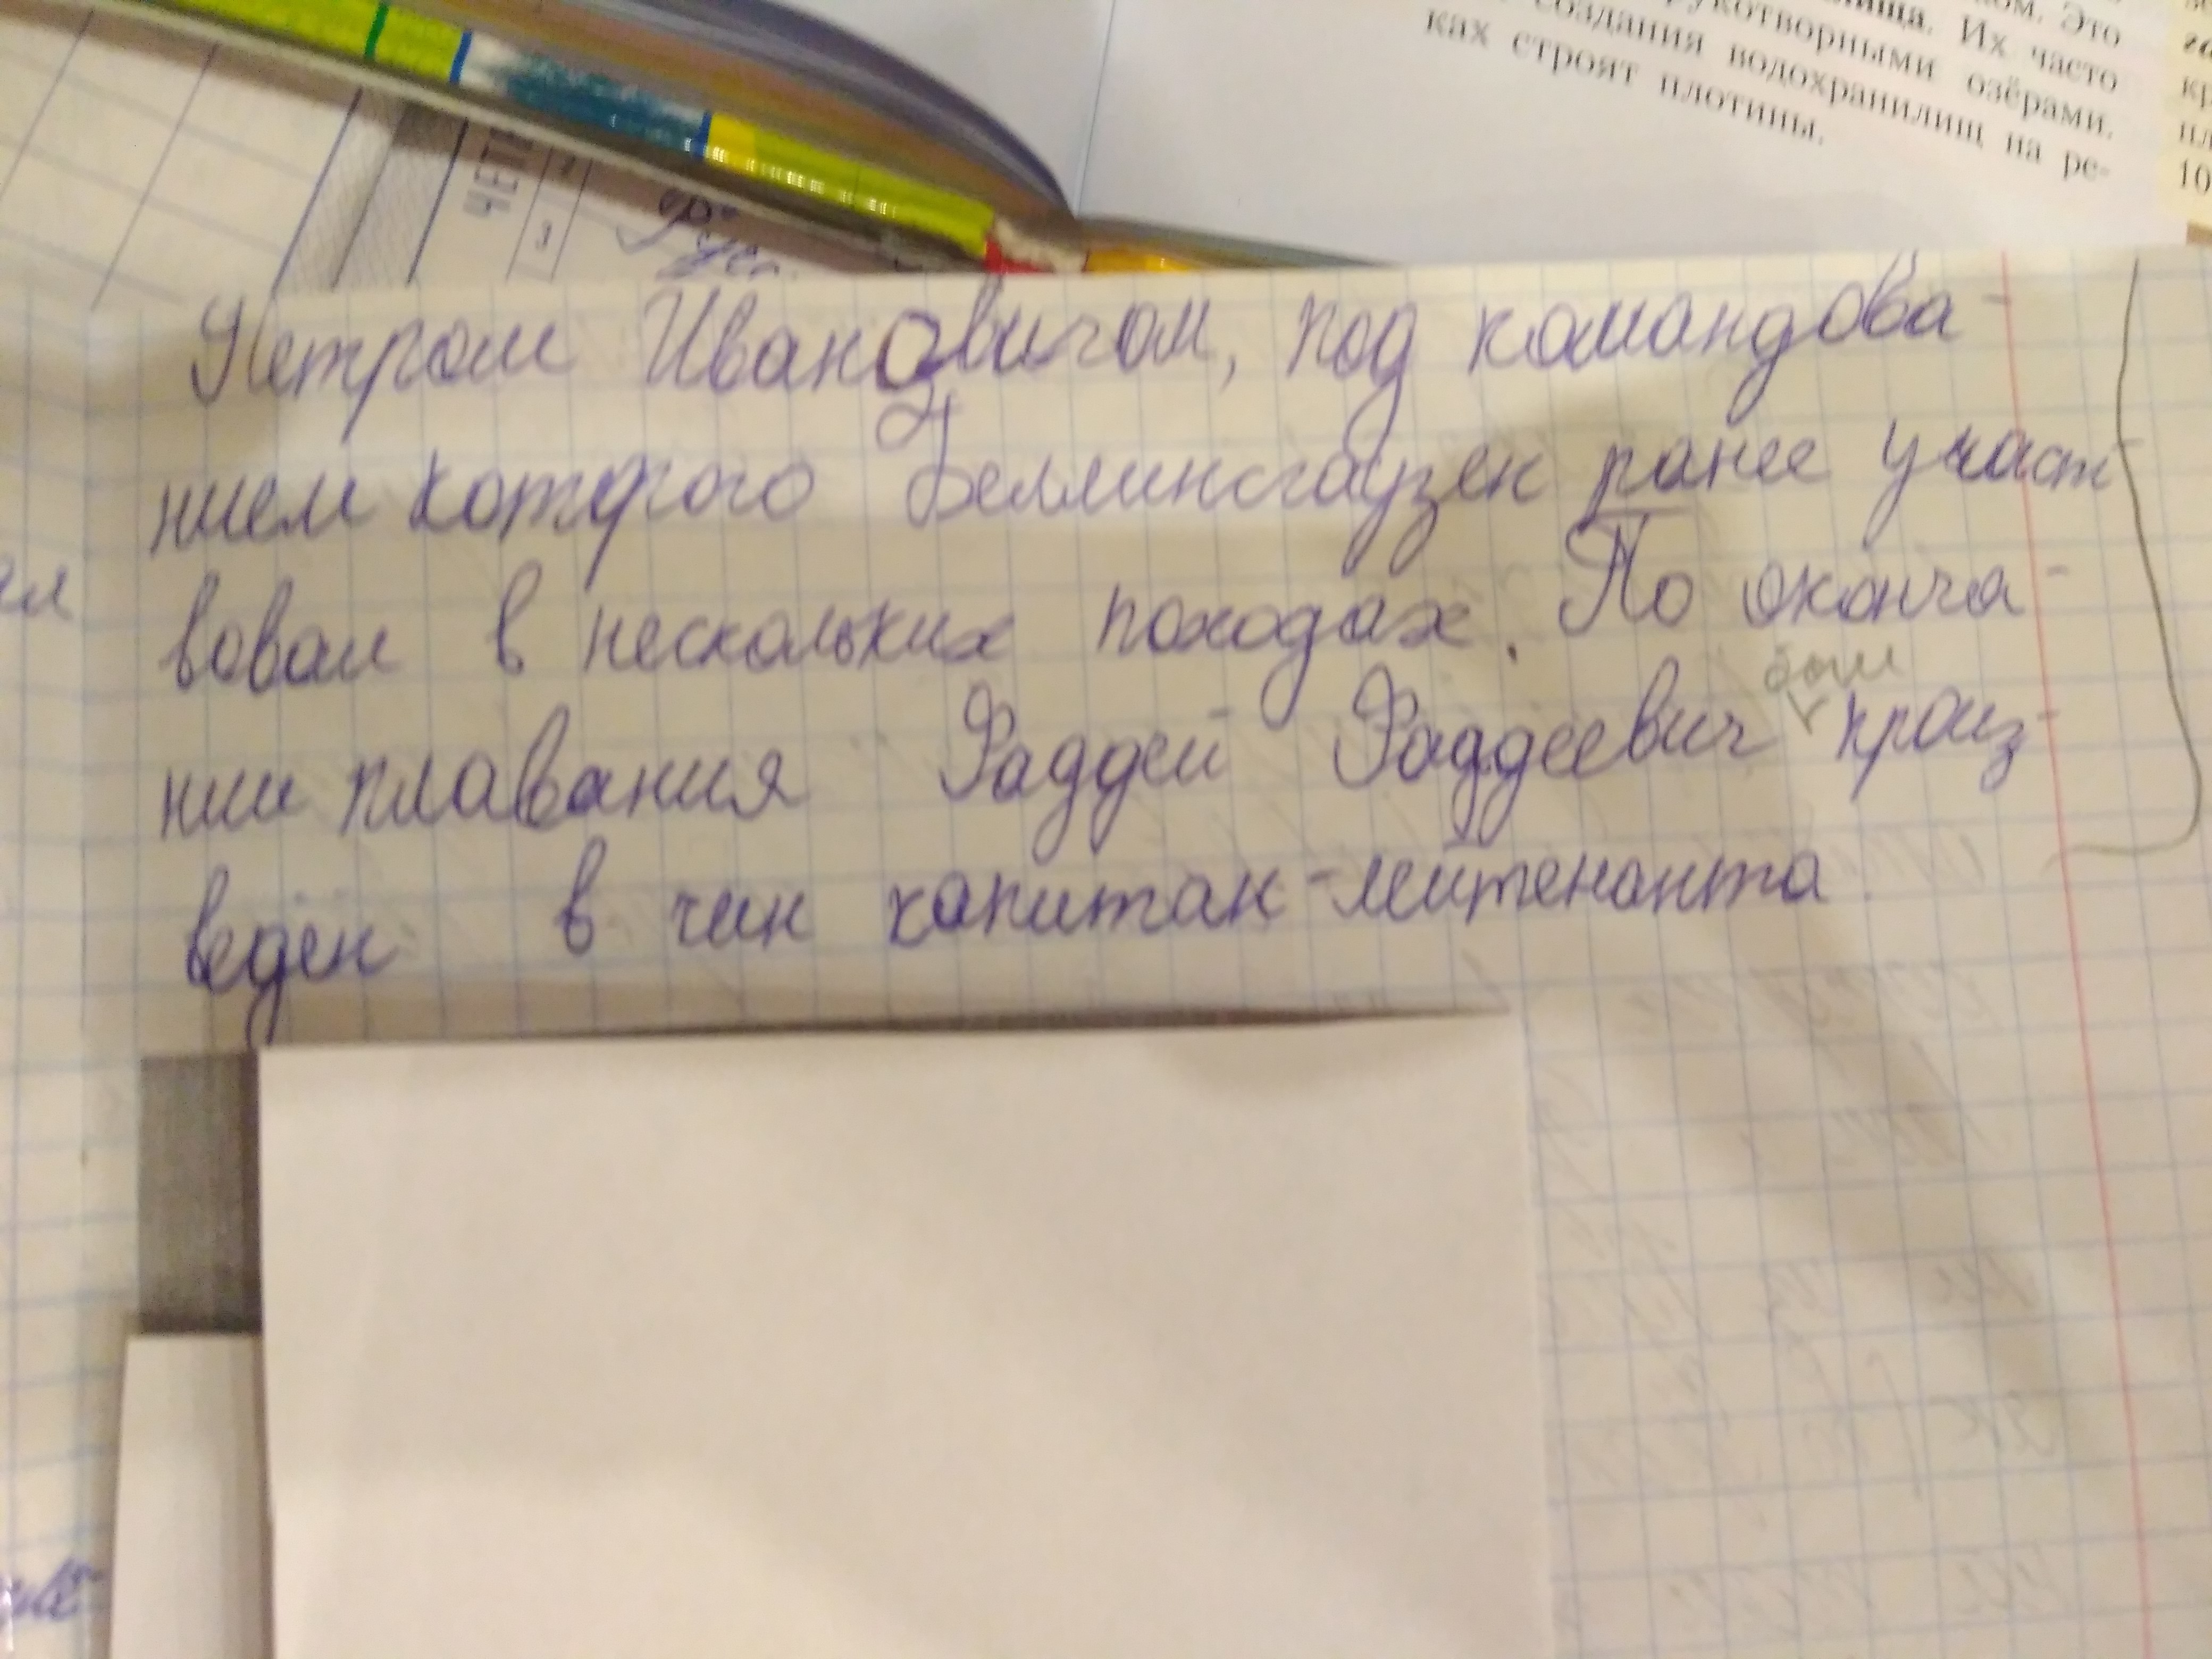 ком. Это
Их часто
рукотворными озёрами.
создания водохранилищ на ре-
ках строят плотины.
10
ЧЕТВ
3
Петром Ивановичом, под командова-
нием которого Беллинсгаузен ранее участ-
вовал в нескольких походах. По оконча-
нии плавания Фаддей Фаддеевич был произ-
веден в чин капитан-лейтенанта